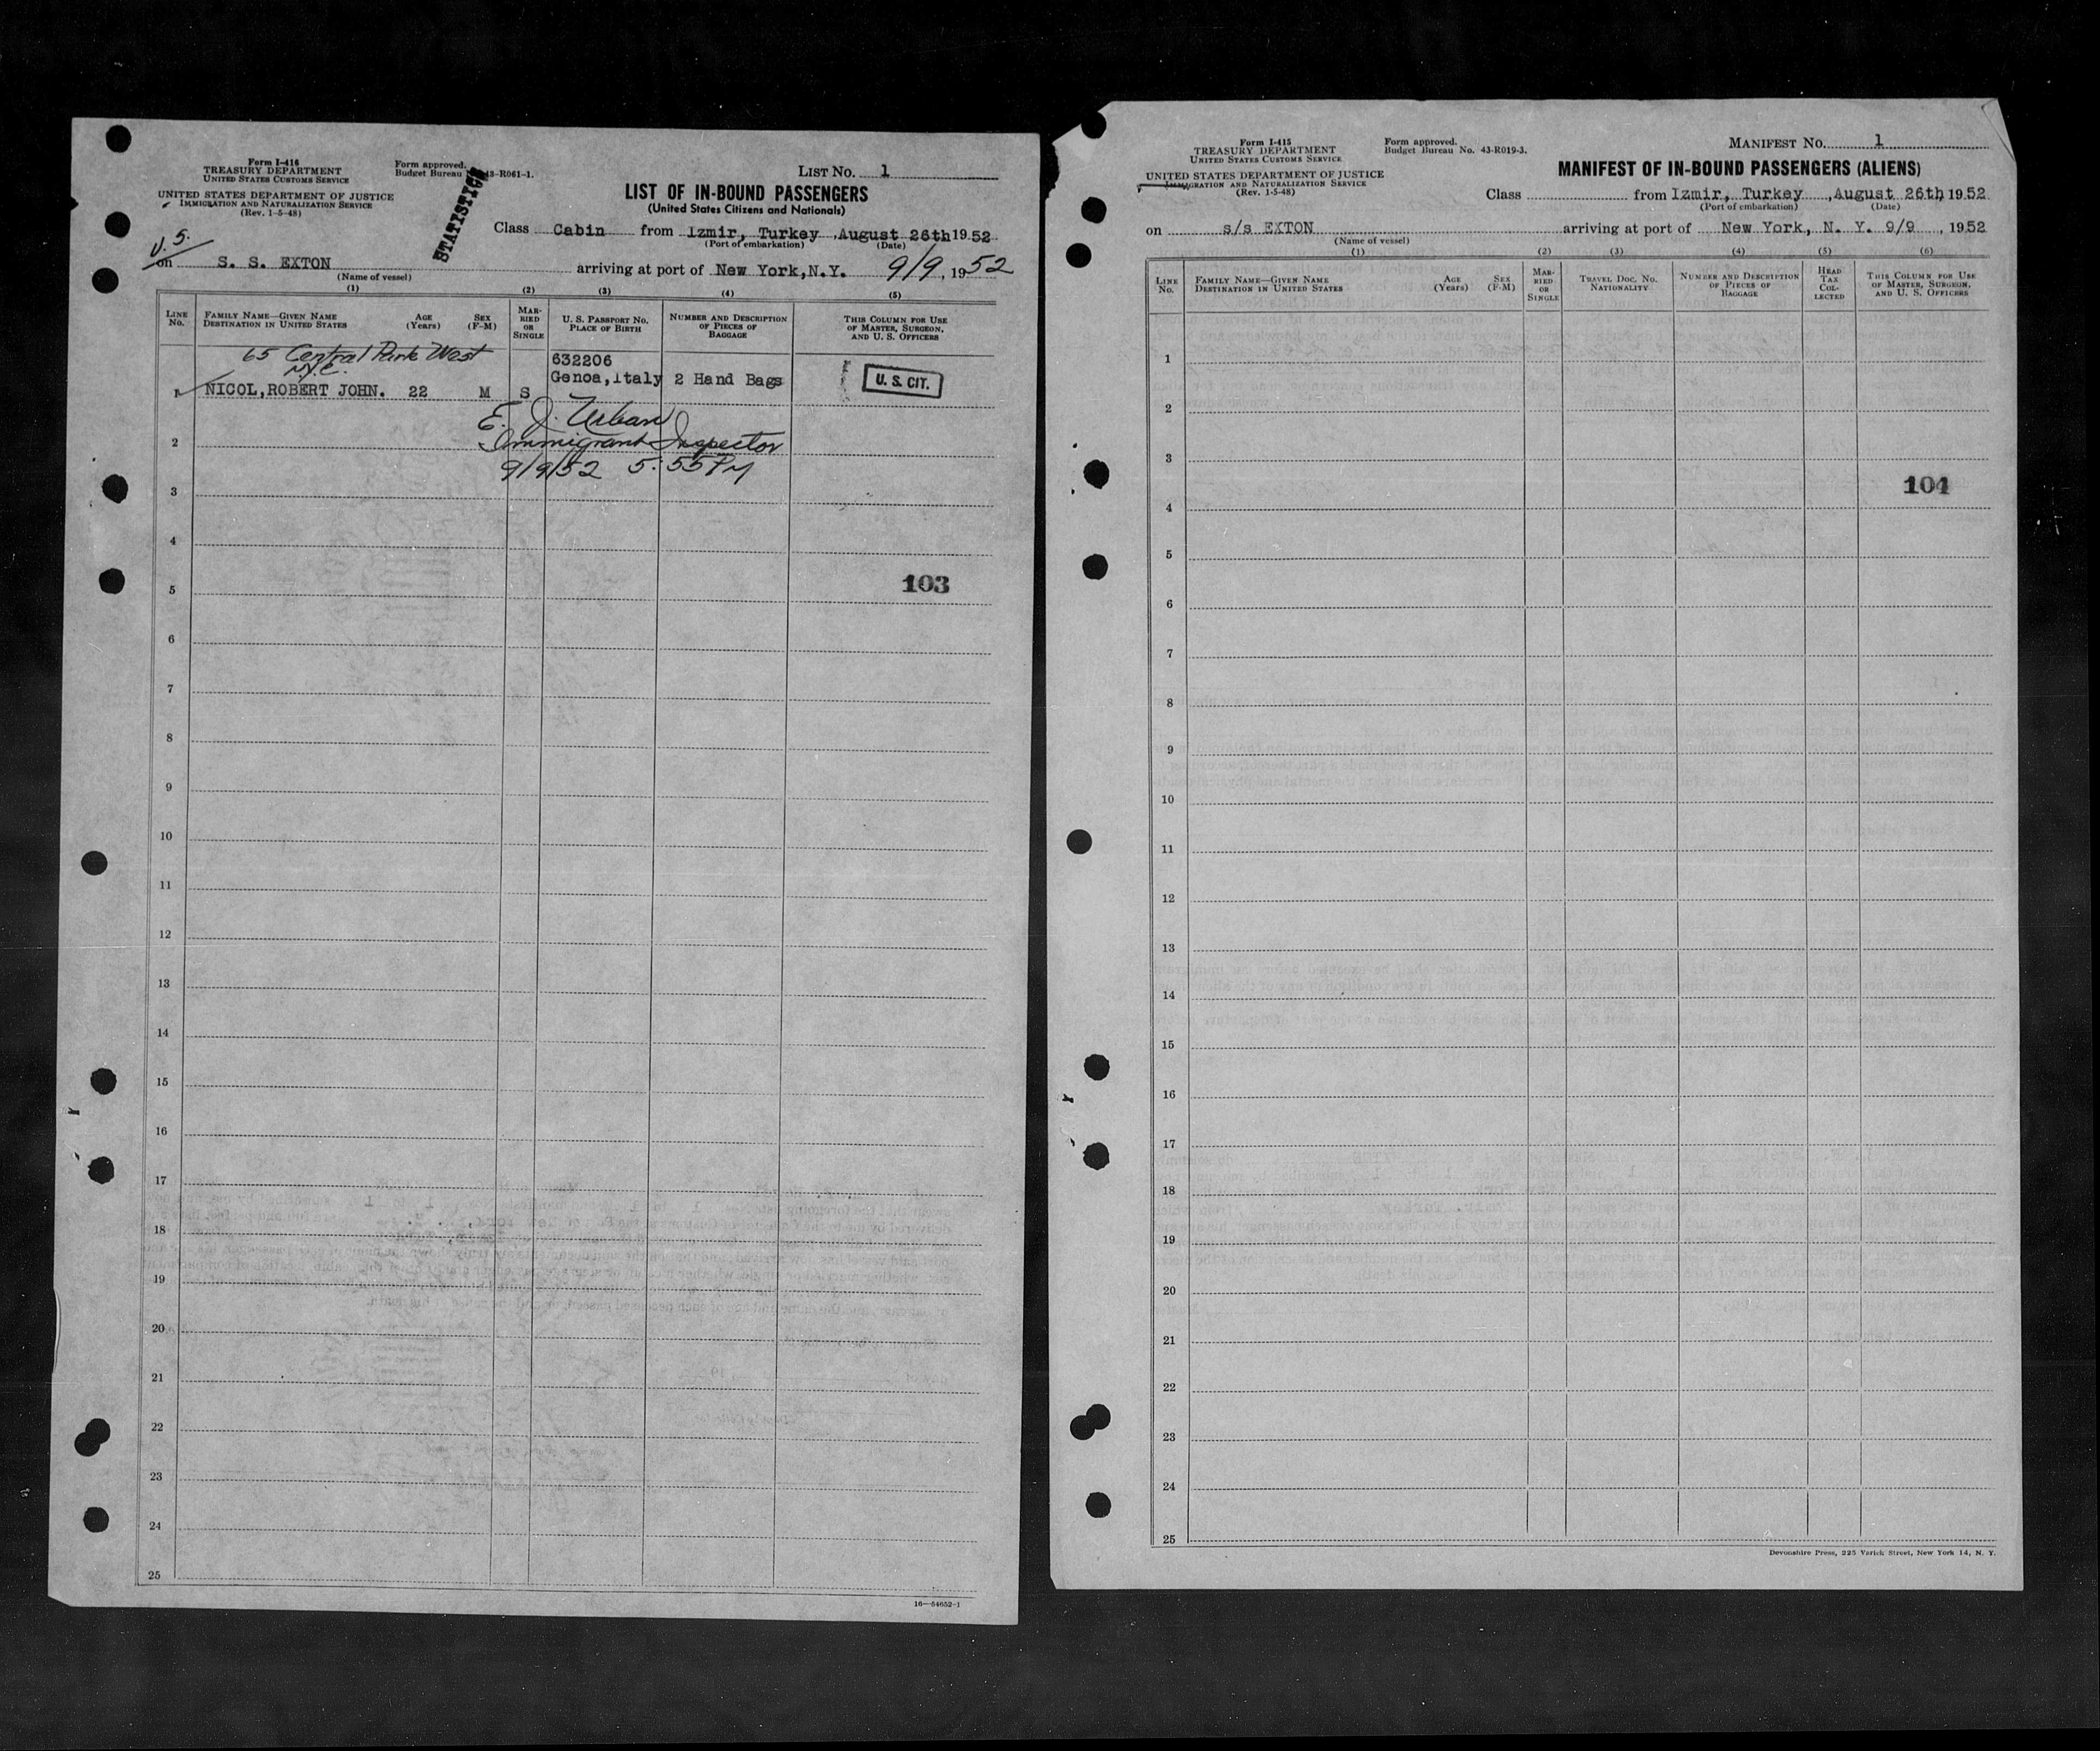 Form I-416
TREASURY DEPARTMENT
UNITED STATES CUSTOMS SERVICE
UNITED STATES DEPARTMENT OF JUSTICE
IMMIGRATION AND NATURALIZATION SERVICE
(Rev. 1-5-48)
Form approved.
Budget Bureau 43-R061-1.
STATISTICS
LIST NO. 1
LIST OF IN-BOUND PASSENGERS
(United States Citizens and Nationals)
Class Cabin from Izmir, Turkey , August 26th 1952
(Port of embarkation) (Date)
U.S.
on S. S. EXTON arriving at port of New York, N.Y. 9/9, 1952
(Name of vessel)
(1) (2) (3) (4) (5)
LINE NO. FAMILY NAME—GIVEN NAME DESTINATION IN UNITED STATES AGE (Years) SEX (F-M) MARRIED OR SINGLE U. S. PASSPORT NO. PLACE OF BIRTH NUMBER AND DESCRIPTION OF PIECES OF BAGGAGE THIS COLUMN FOR USE OF MASTER, SURGEON, AND U. S. OFFICERS
65 Central Park West
N.Y.C.
632206
1 NICOL, ROBERT JOHN. 22 M S Genoa, Italy 2 Hand Bags U. S. CIT.
E. J. Urban
2 Immigrant Inspector
9/9/52 5:55 PM
3
4
103
5
6
7
8
9
10
11
12
13
14
15
16
17
18
19
20
21
22
23
24
25
16—54652-1
Form I-415
TREASURY DEPARTMENT
UNITED STATES CUSTOMS SERVICE
UNITED STATES DEPARTMENT OF JUSTICE
IMMIGRATION AND NATURALIZATION SERVICE
(Rev. 1-5-48)
Form approved.
Budget Bureau No. 43-R019-3.
MANIFEST NO. 1
MANIFEST OF IN-BOUND PASSENGERS (ALIENS)
Class from Izmir, Turkey , August 26th, 1952
(Port of embarkation) (Date)
on s/s EXTON arriving at port of New York, N. Y. 9/9 , 1952
(Name of vessel)
(1) (2) (3) (4) (5) (6)
LINE NO. FAMILY NAME—GIVEN NAME DESTINATION IN UNITED STATES AGE (Years) SEX (F-M) MARRIED OR SINGLE TRAVEL DOC. NO. NATIONALITY NUMBER AND DESCRIPTION OF PIECES OF BAGGAGE HEAD TAX COLLECTED THIS COLUMN FOR USE OF MASTER, SURGEON, AND U. S. OFFICERS
1
2
3
104
4
5
6
7
8
9
10
11
12
13
14
15
16
17
18
19
20
21
22
23
24
25
Devonshire Press, 225 Varick Street, New York 14, N. Y.